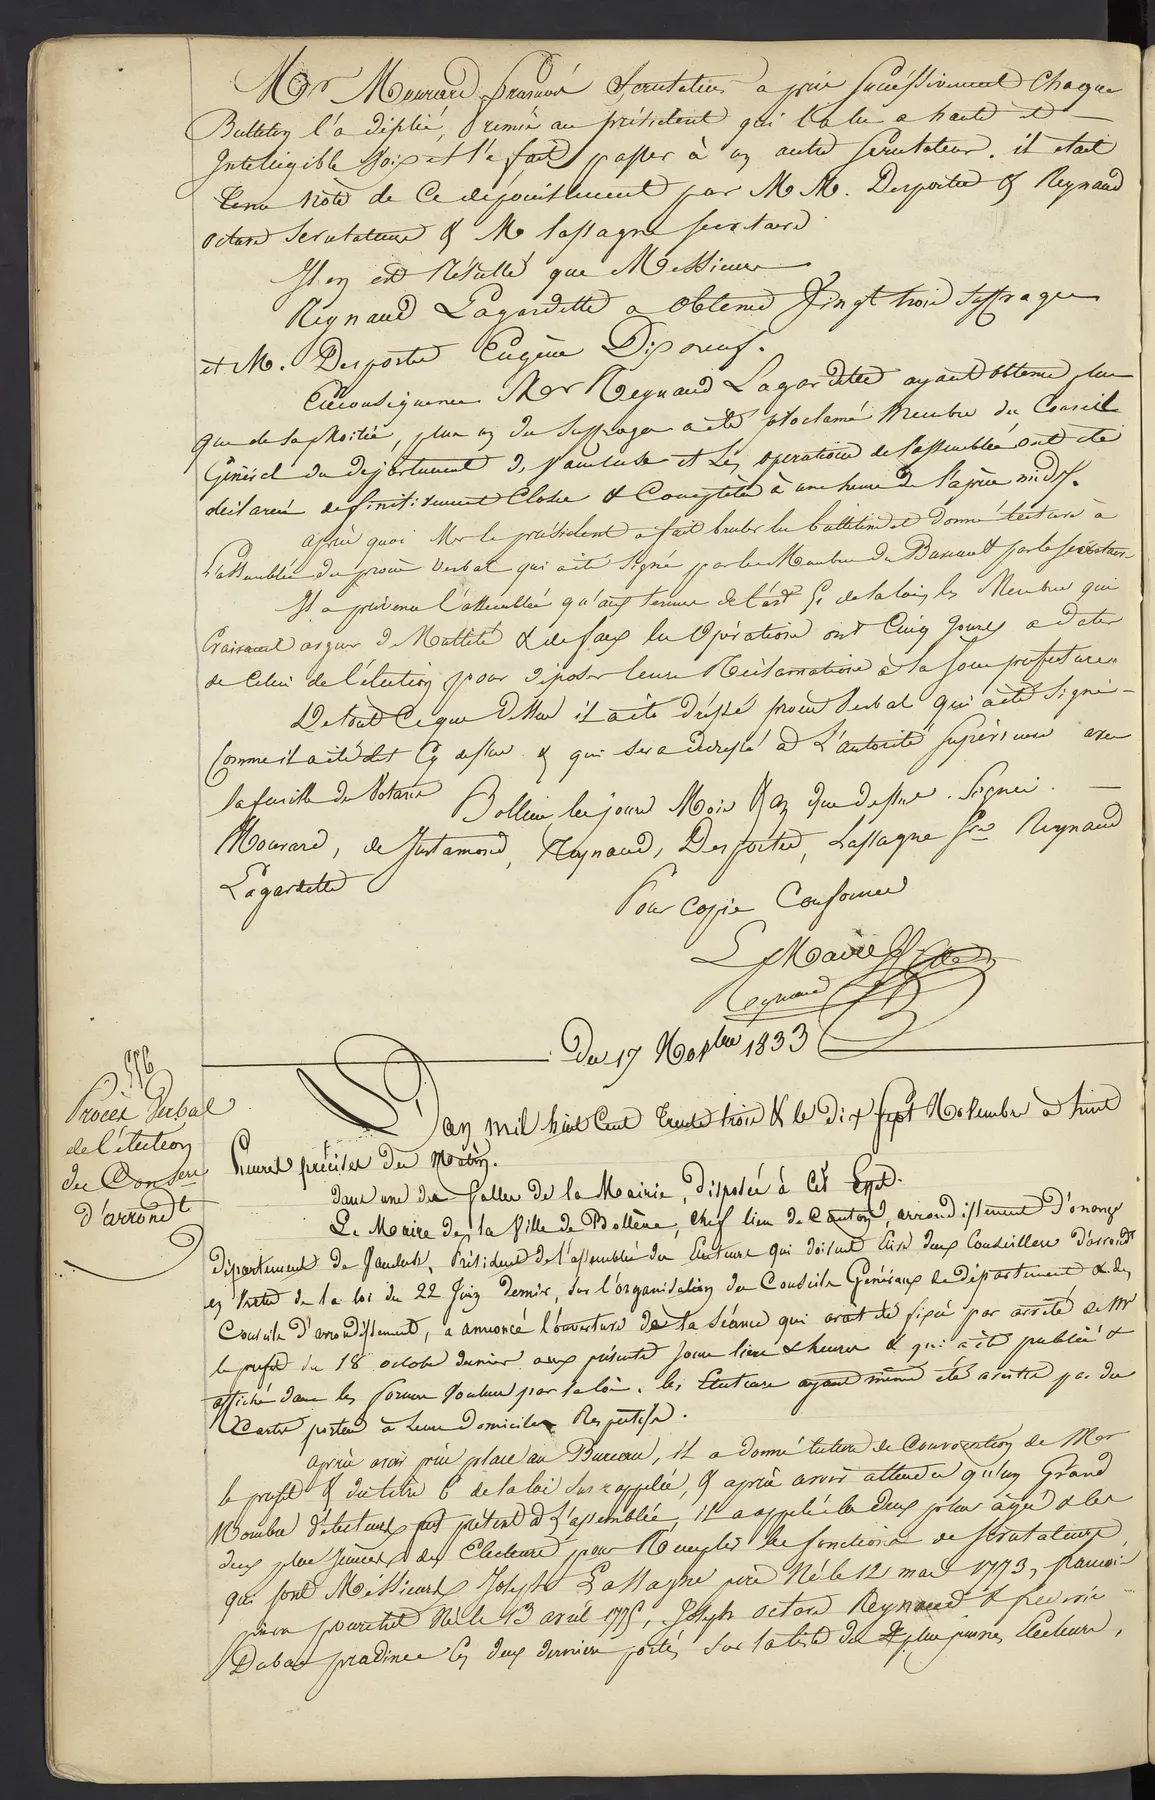 Mr Mourard premier Scrutateur a pris successivement Chaque
Bulletin l'a déplié, remis au président qui l'a lu a haute et
Intelligible Voix et l'a fait passer à un autre scrutateur. il était
tenu Note de Ce dépouillement par M M. Desportes & Reynaud
octave Scrutateurs & M lassagne secretaire
Il en est Résulté que Messieurs
Reynaud Lagardette a obtenu Vingt trois suffrages
et M. Desportes Eugène Dix neuf.
En Conséquence Mr Reynaud Lagardette ayant obtenu plus
que de la Moitié, plus un des suffrages a été proclamé Membre du Conseil
Général du département de Vaucluse et Les operations de l'assemblée ont été
déclarées définitivement Closes & Complètes à une heure de l'après midy.
après quoi Mr le président a fait bruler les bulletins et donné lecture à
L'assemblée du procès verbal qui a été signé par les Membres du Bureau & par le secretaire
Il a prévenu l'assemblée qu'aux termes de l'art 51 de la loi, les Membres qui
Croiraient arguer de Nullité & de faux les Opérations ont Cinq Jours a dater
de Celui de l'élection pour déposer leurs Réclamations à la sous préfecture.
De tout Ce que Dessus il a été dréssé procès Verbal qui a été Signé
Comme il a été dit Cy dessus & qui sera adressé à L'autorité supérieure avec
la feuille des Votans
Bollène, les jours Mois & an que dessus. Signés.
Mourard, de Justamond, Reynaud, Desportes, Lassagne Sre Reynaud
Lagardette
Pour Copie Conforme
Le Maire
Reynaud
Du 17 Novbre 1833
556
Procès Verbal
de l'élection
du Conser
d'arrondt
L'an mil huit Cent trente trois & le dix sept Novembre à huit
heures précises du Matin.
dans une des Salles de la Mairie, disposée à Cet Effet.
Le Maire de la Ville de Bollène, chef lieu de Canton, arrondissement d'orange
département de Vaucluse, Président de l'assemblée des électeurs qui doivent Elire deux Conseillers d'arrondt
en Vertu de la loi du 22 Juin dernier, sur l'organisation des Conseils Généraux de département & des
Conseils d'arrondissement, a annoncé l'ouverture de la séance qui avait été fixée par arrêté de Mr
le prefet du 18 octobre dernier aux présents Jour lieu & heure & qui a été publiée &
affiché dans les formes Voulues par la loi. les Electeurs ayant même été avertis par des
Cartes portées à leurs domiciles Respectifs.
après avoir pris place au Bureau, il a donné lecture de Convocation de Mr
le prefet & du titre 6 de la loi sus rappelée, & après avoir attendu qu'un Grand
Nombre d'électeurs fut présent à L'assemblée, il a appelé les deux plus âgés & les
deux plus Jeunes des Electeurs pour Remplir les fonctions de scrutateurs
qui sont Messieurs Joseph Lassagne père Né le 12 mai 1773, francois
pierre Né le 13 avril 1775, Joseph octave Reynaud &
Dubac pradines les deux derniers portés sur la liste des plus jeunes Electeurs,